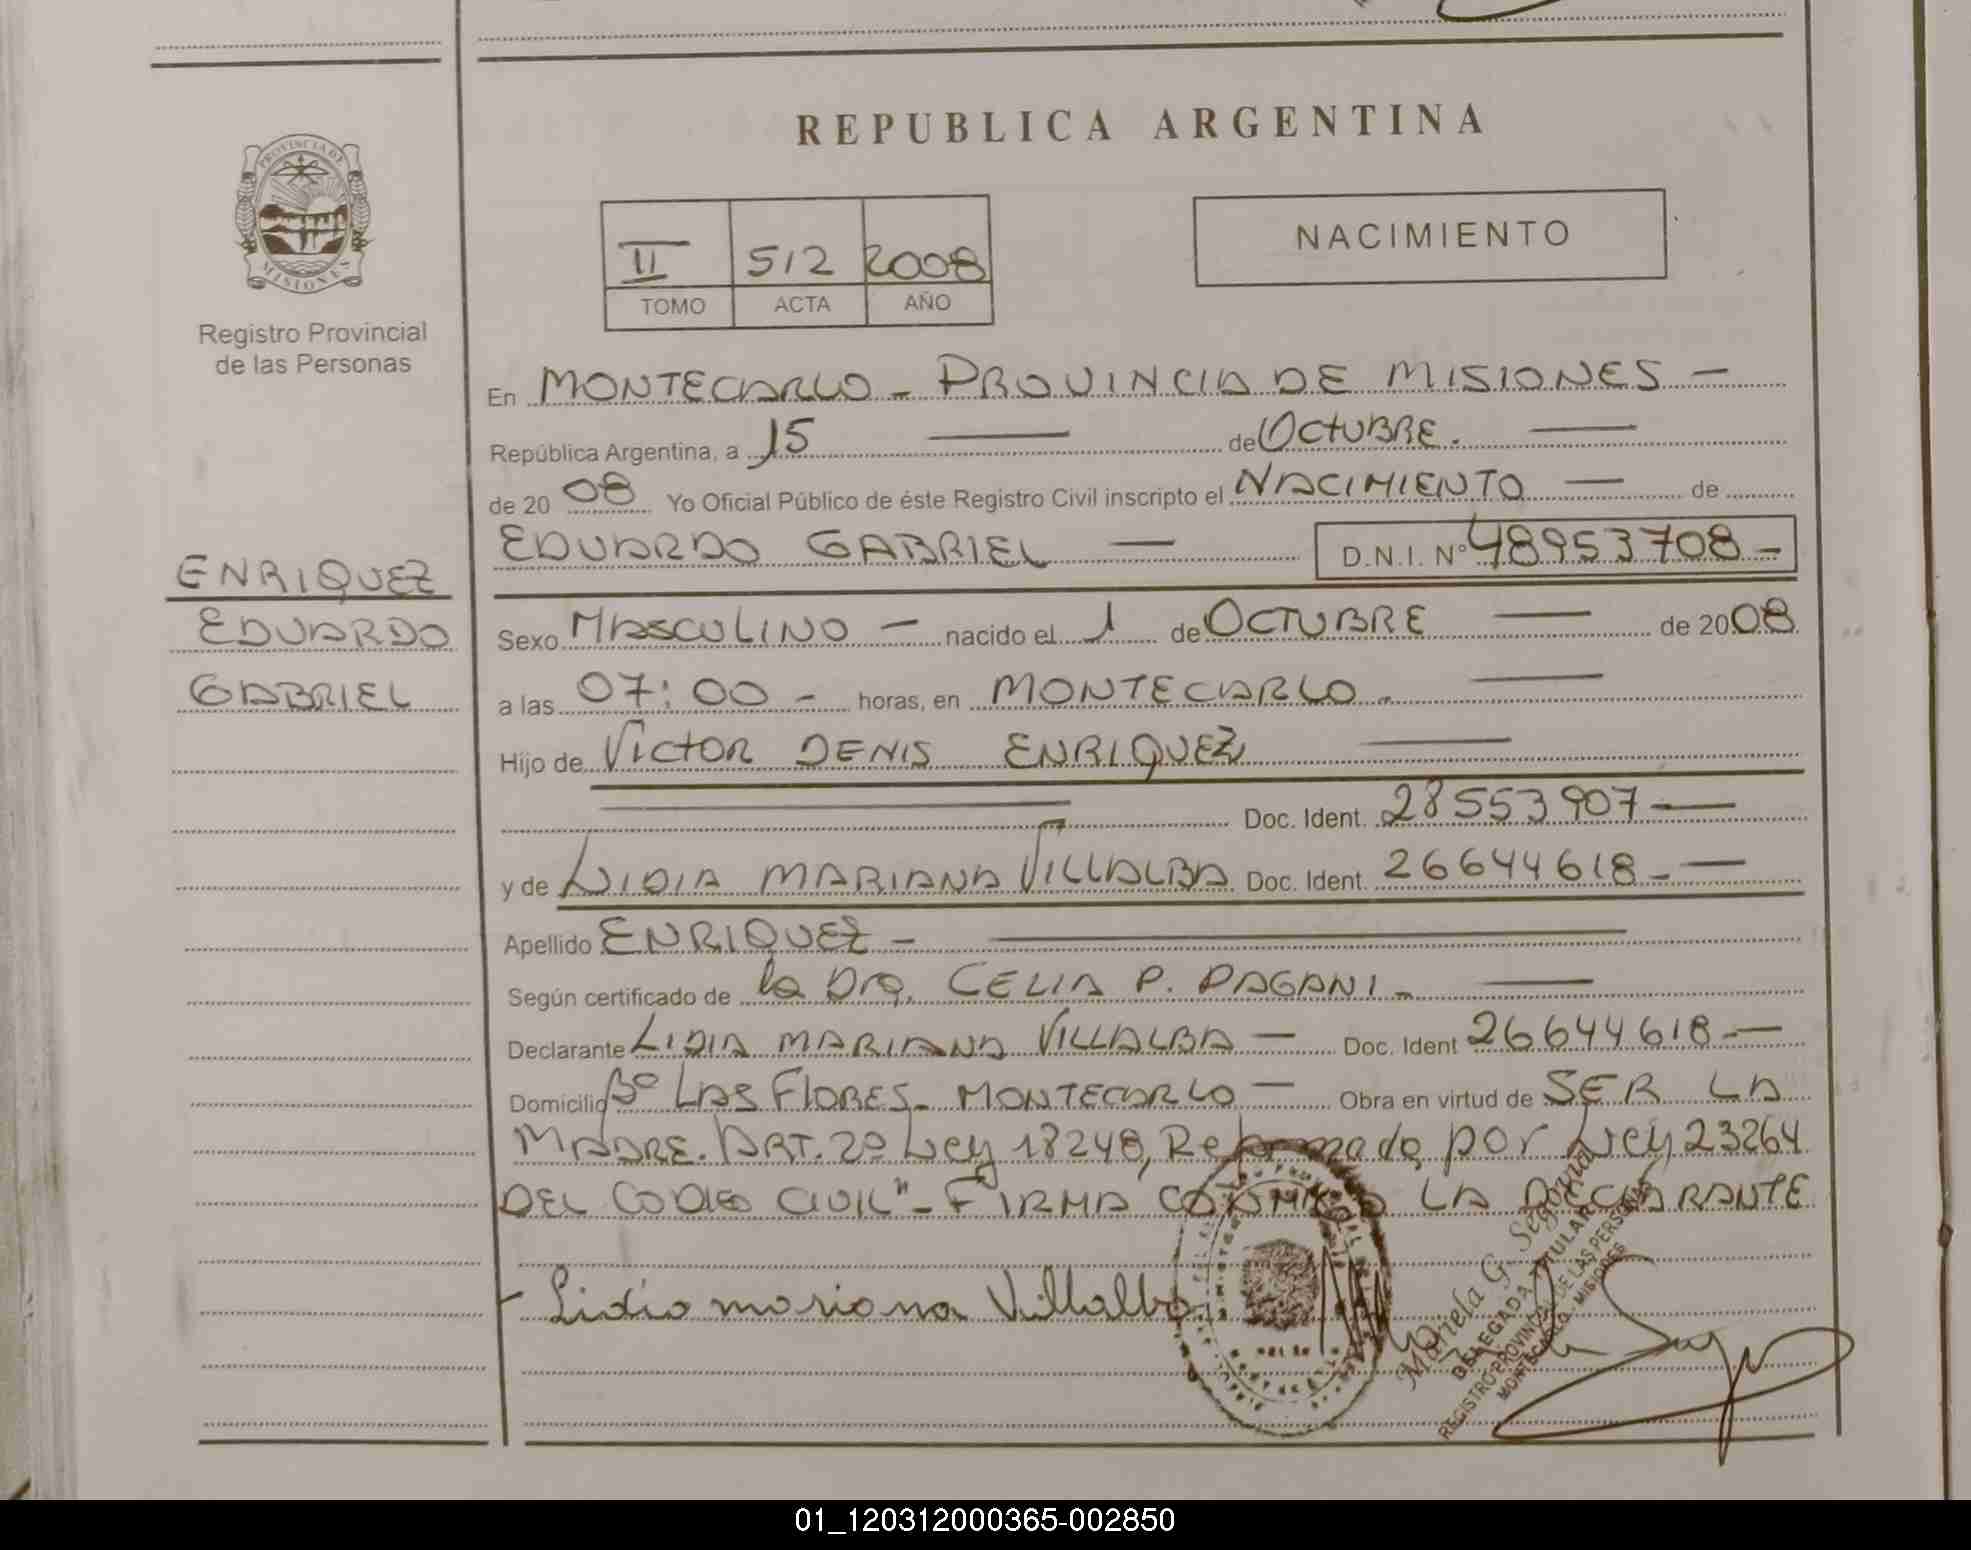 REPUBLICA ARGENTINA
PROVINCIA DE
MISIONES
Registro Provincial
de las Personas
II 512 2008
TOMO ACTA AÑO
NACIMIENTO
En MONTECARLO - PROVINCIA DE MISIONES -
República Argentina, a 15 de OCTUBRE.
de 2008 Yo Oficial Público de éste Registro Civil inscripto el NACIMIENTO - de
EDUARDO GABRIEL - D.N.I. Nº 48953708 -
ENRIQUEZ
EDUARDO
GABRIEL
Sexo MASCULINO - nacido el 1 de OCTUBRE de 2008
a las 07:00 - horas, en MONTECARLO -
Hijo de VICTOR DENIS ENRIQUEZ
Doc. Ident. 28553907 -
y de LIDIA MARIANA VILLALBA Doc. Ident. 26644618 -
Apellido ENRIQUEZ -
Según certificado de la Dra. CELIA P. PAGANI -
Declarante LIDIA MARIANA VILLALBA - Doc. Ident 26644618 -
Domicilio Bº LAS FLORES - MONTECARLO - Obra en virtud de SER LA
MADRE. ART. 2º Ley 18248, Reformada por Ley 23264
DEL CODIGO CIVIL" - FIRMA CONMIGO LA DECLARANTE
- Lidia mariana Villalba
Mariela G. Segovia
DELEGADA TITULAR
REGISTRO PROVINCIAL DE LAS PERSONAS
MONTECARLO - MISIONES
01_120312000365-002850